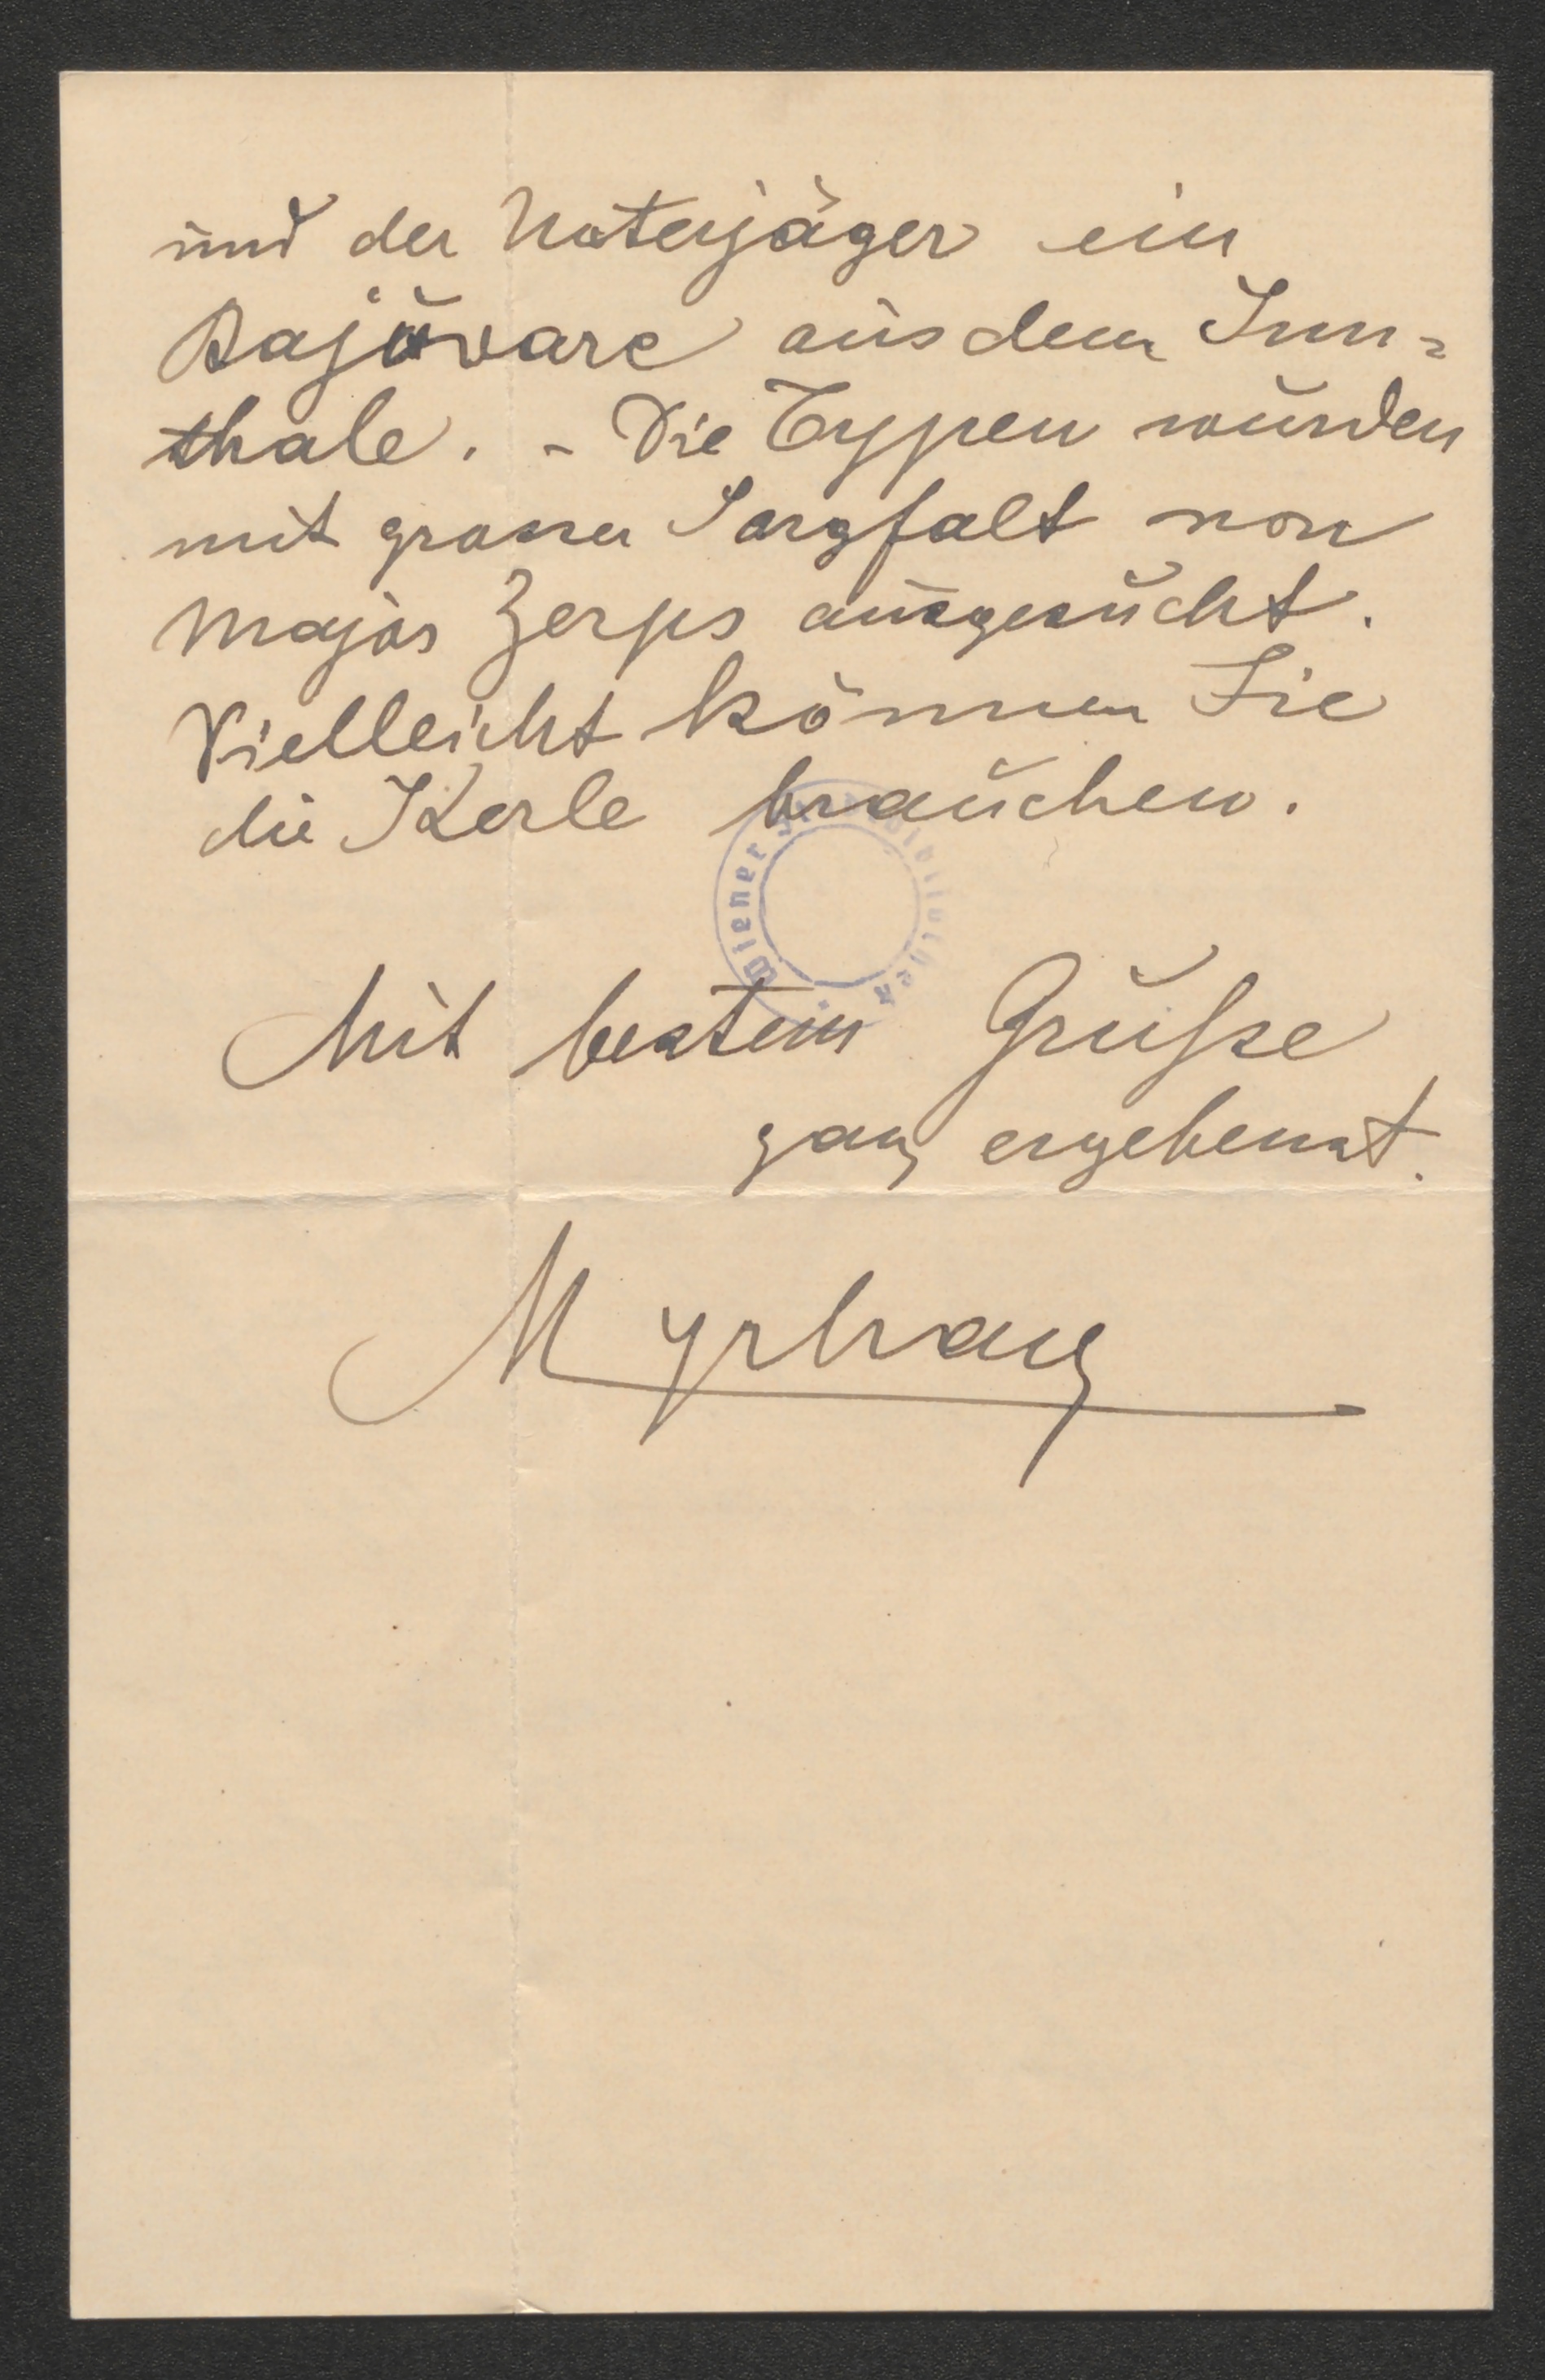 und der Unterjäger ein
Bajuvare aus dem Inn=
thale. - Die Typen wurden
mit grosser Sorgfalt von
Major Zerps ausgesucht.
Vielleicht können Sie
die Kerle brauchen.
Wiener
Mit bestem Gruße
ganz ergebenst.
Myrbach